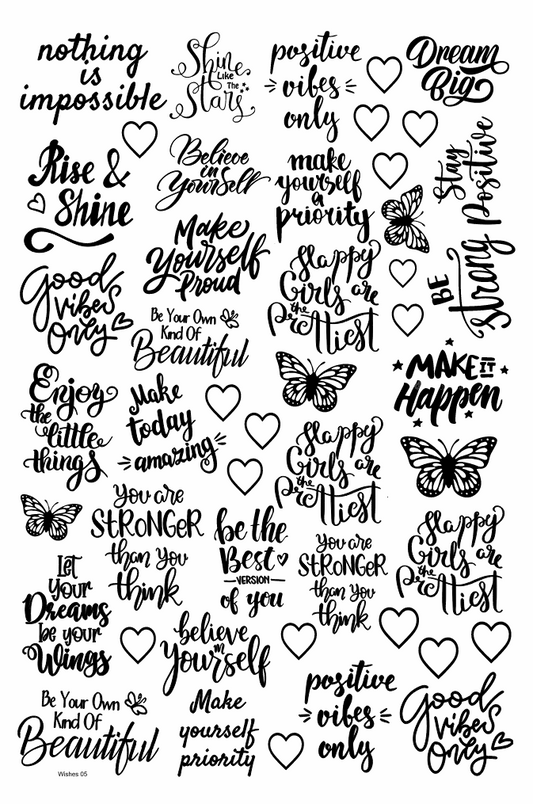 nothing
is
impossible
Shine
Like The
Stars
positive
vibes
only
Dream
Big
Rise &
Shine
Believe
in
YourSelf
make
yourself
a
priority
Stay
Positive
BE
Strong
Good
vibes
Only
Make
Yourself
Proud
Happy
Girls are
the
Prettiest
Be Your Own
Kind Of
Beautiful
MAKE IT
Happen
Enjoy
the
little
things
Make
today
amazing
Happy
Girls are
the
Prettiest
You are
STRoNGeR
than you
think
be the
Best
VERSION
of you
You are
STRoNGeR
than you
think
Happy
Girls are
the
Prettiest
Let
your
Dreams
be your
Wings
believe
in
Yourself
Be Your Own
Kind Of
Beautiful
Make
yourself
priority
positive
vibes
only
Good
vibes
Only
Wishes 05